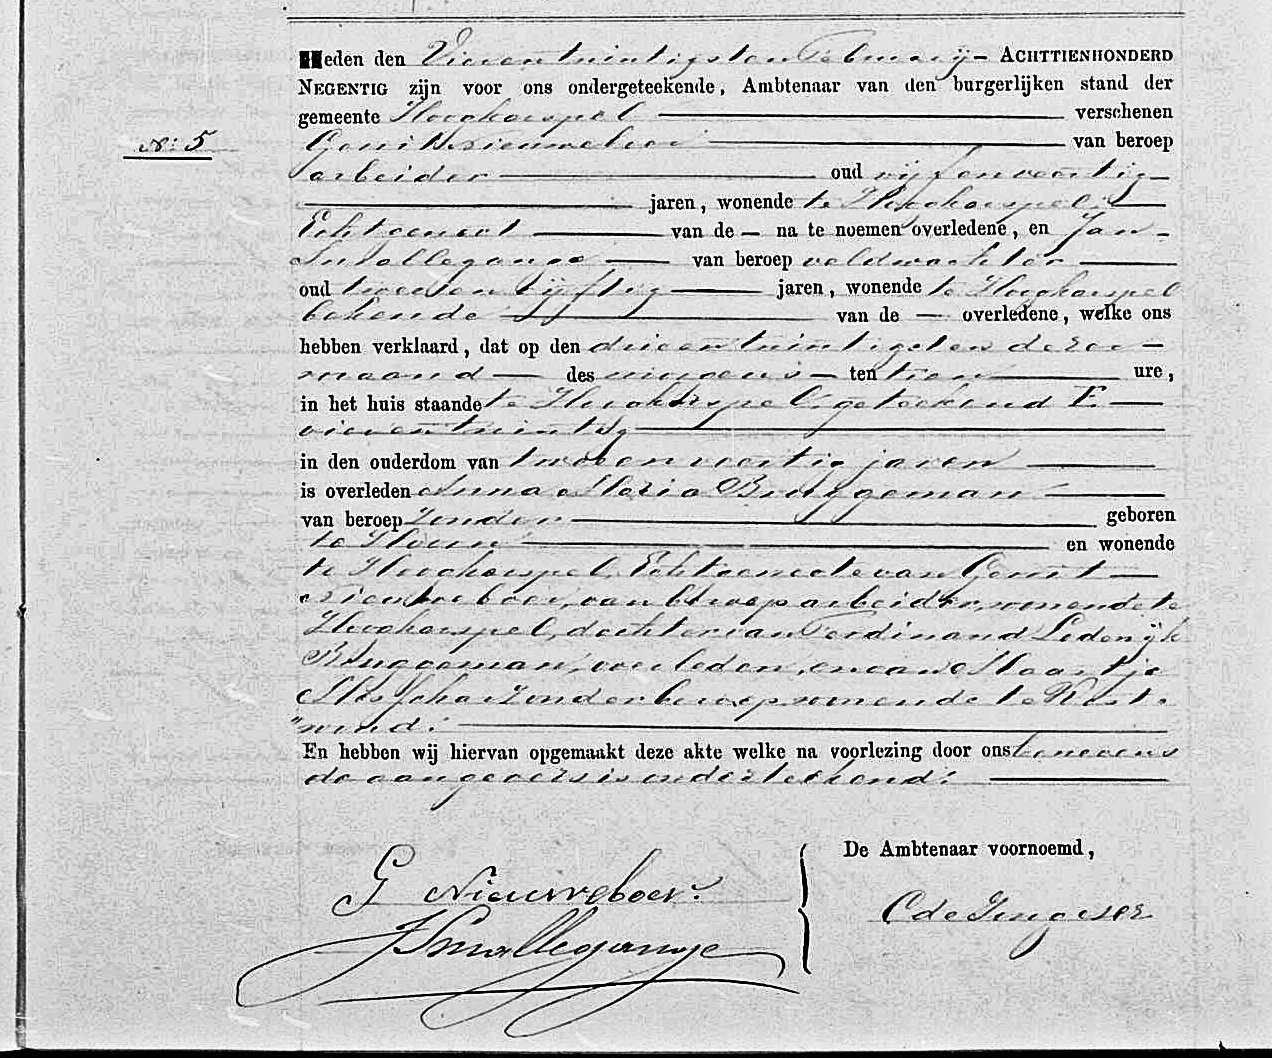 Heden den Vierentwintigsten Februarij – ACHTTIENHONDERD
NEGENTIG zijn voor ons ondergeteekende, Ambtenaar van den burgerlijken stand der
gemeente Hoogkarspel verschenen
No: 5
Gerrit Nieuweboer van beroep
arbeider oud vijfenveertig
jaren, wonende te Hoogkarspel
Echtgenoot van de – na te noemen overledene, en Jan
Smallegange van beroep veldwachter
oud tweeenvijftig jaren, wonende te Hoogkarspel
bekende van de – overledene, welke ons
hebben verklaard, dat op den drieentwintigsten dezer
maand – des morgens – ten tien ure,
in het huis staande te Hoogkarspel, geteekend E
vierentwintig
in den ouderdom van tweeenveertig jaren
is overleden Anna Maria Bruggeman
van beroep zonder geboren
te Hoorn en wonende
te Hoogkarspel, Echtgenoote van Gerrit
Nieuweboer, van beroep arbeider, wonende te
Hoogkarspel, dochter van Ferdinand Lodewijk
Bruggeman, overleden, en van Maartje
zonder beroep wonende te Oost-
"woud.
En hebben wij hiervan opgemaakt deze akte welke na voorlezing door ons benevens
de aangevers is onderteekend.
De Ambtenaar voornoemd,
G Nieuweboer.
J Smallegange